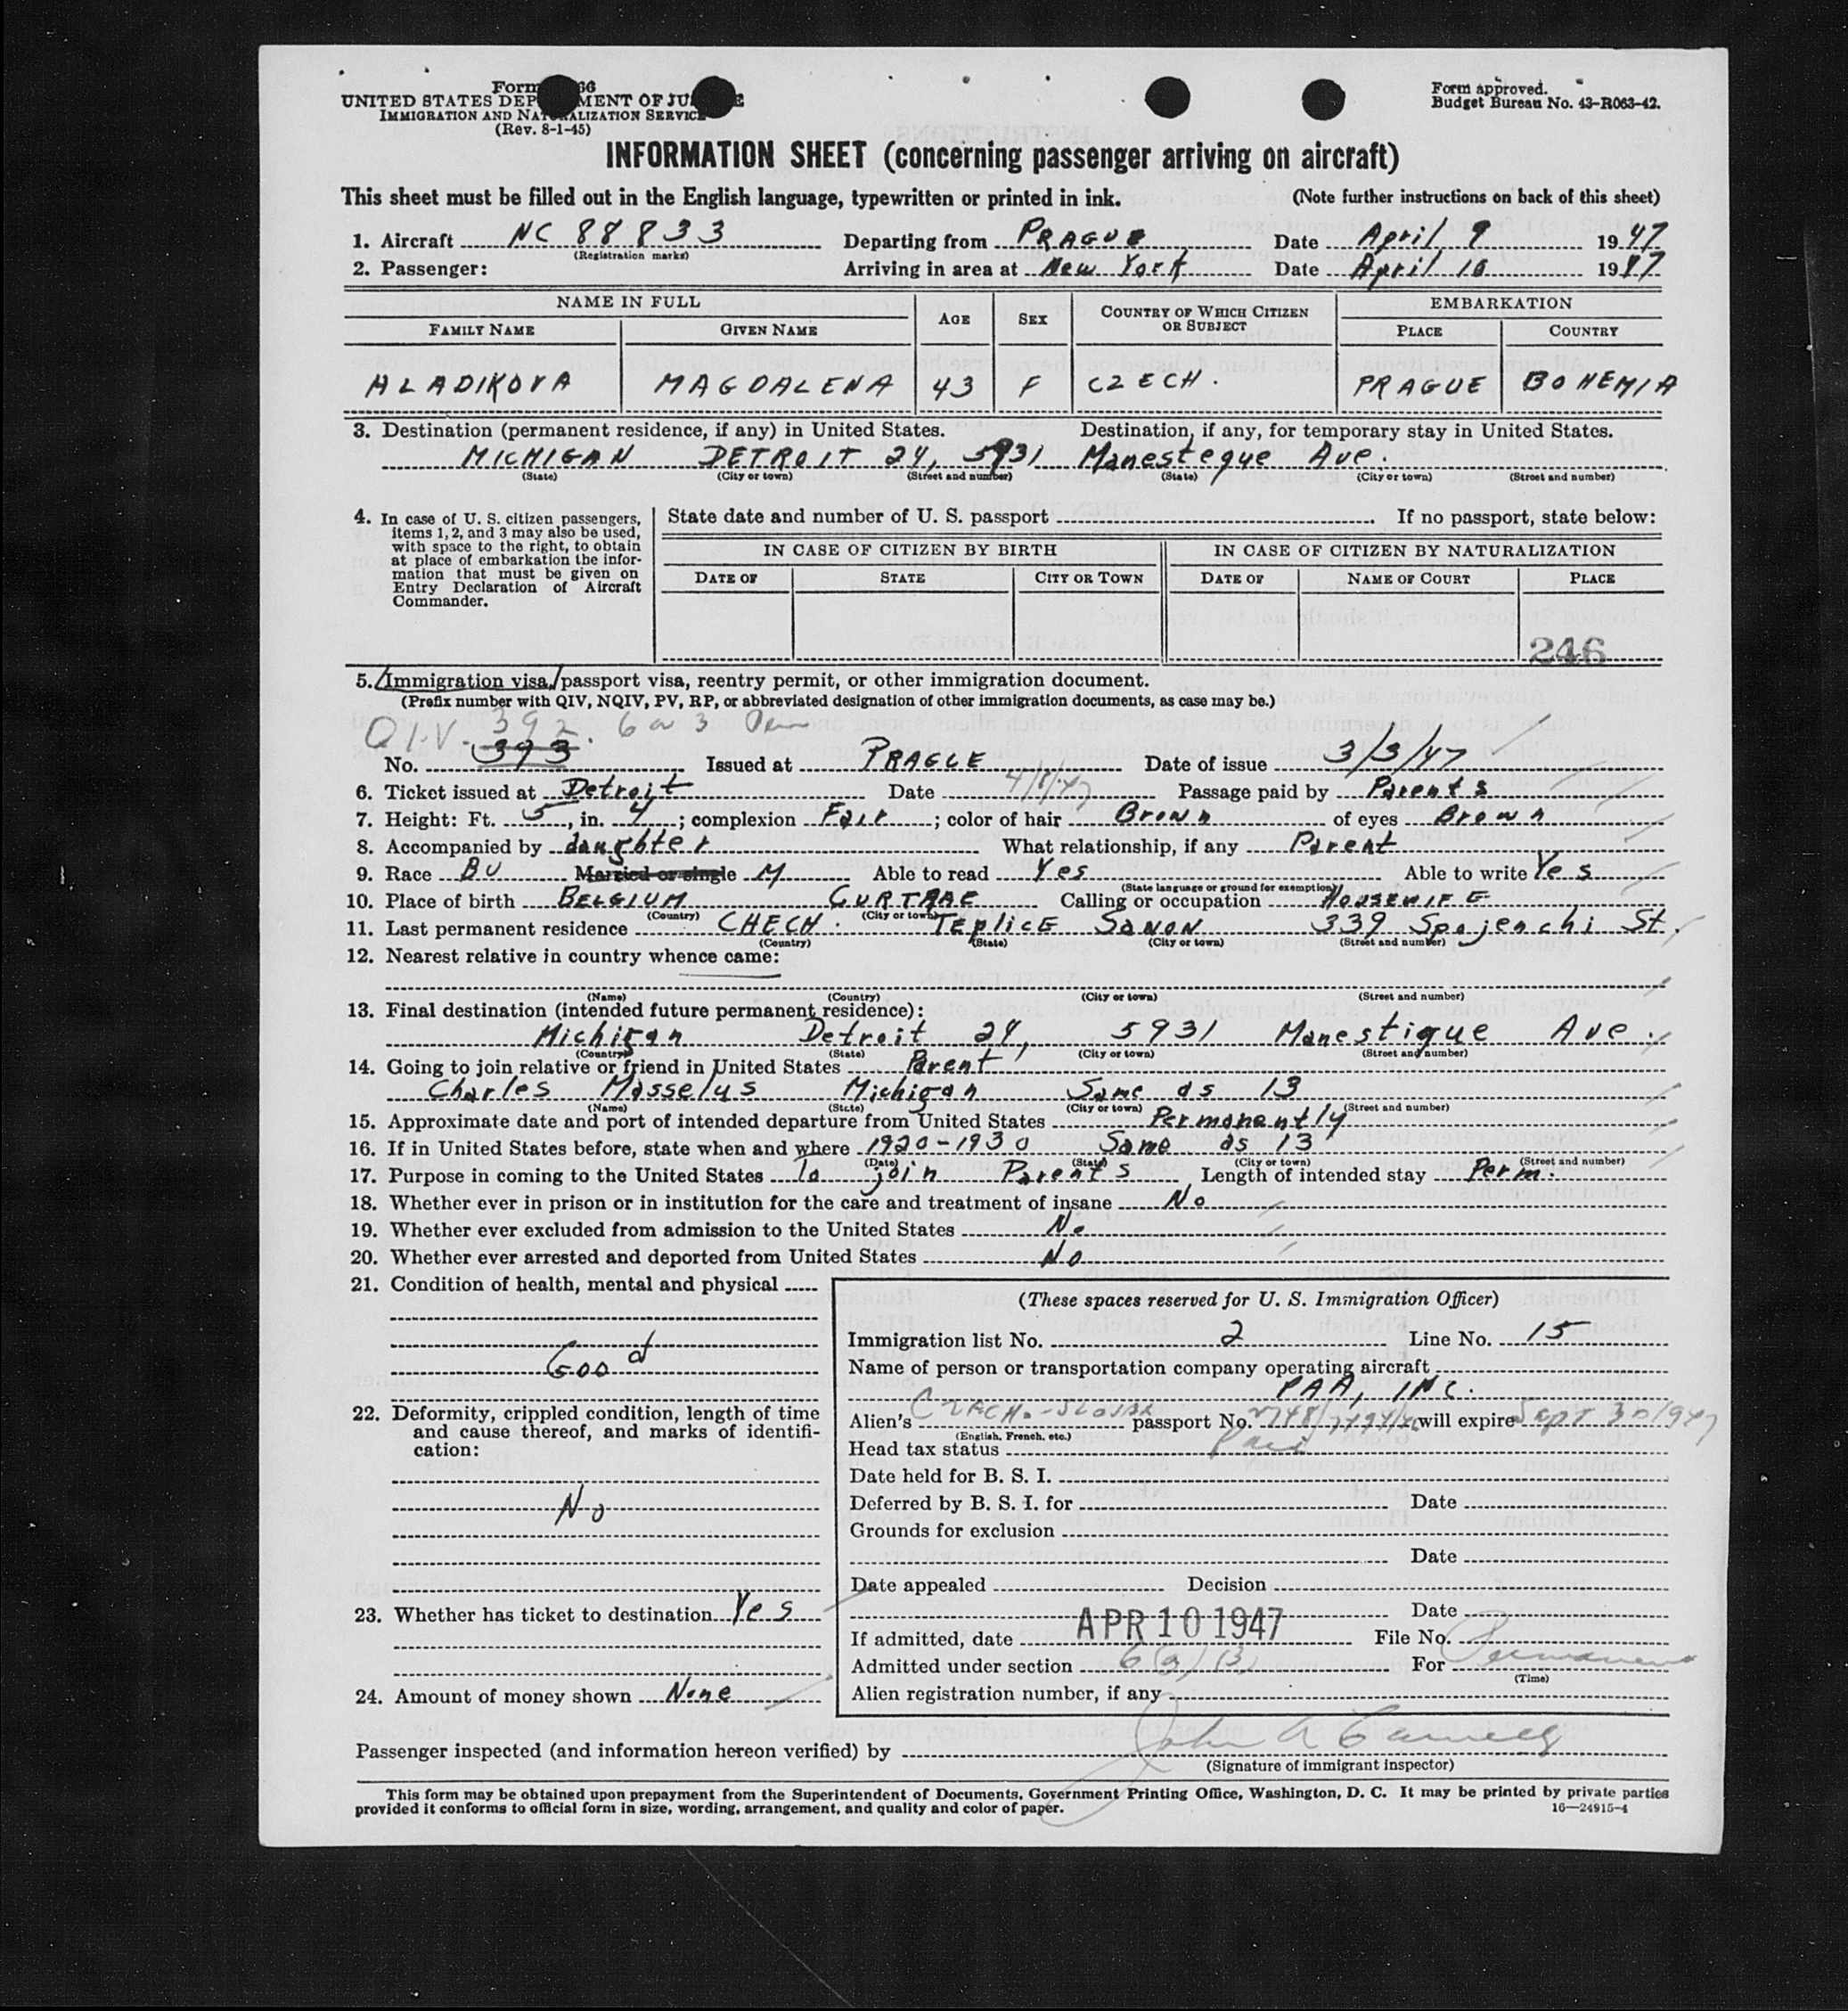 Form 66
UNITED STATES DEP MENT OF JU E
IMMIGRATION AND NATURALIZATION SERVICE
(Rev. 8-1-45)
Form approved.
Budget Bureau No. 43-R063-42.
INFORMATION SHEET (concerning passenger arriving on aircraft)
This sheet must be filled out in the English language, typewritten or printed in ink. (Note further instructions on back of this sheet)
1. Aircraft NC 88833 Departing from PRAGUE Date April 9 1947
(Registration marks)
2. Passenger: Arriving in area at New York Date April 10 1947
NAME IN FULL AGE SEX COUNTRY OF WHICH CITIZEN OR SUBJECT EMBARKATION
FAMILY NAME GIVEN NAME PLACE COUNTRY
HLADIKOVA MAGDALENA 43 F CZECH. PRAGUE BOHEMIA
3. Destination (permanent residence, if any) in United States. Destination, if any, for temporary stay in United States.
MICHIGAN DETROIT 24, 5931 Manesteque Ave.
(State) (City or town) (Street and number) (State) (City or town) (Street and number)
4. In case of U. S. citizen passengers, items 1, 2, and 3 may also be used, with space to the right, to obtain at place of embarkation the information that must be given on Entry Declaration of Aircraft Commander.
State date and number of U. S. passport If no passport, state below:
IN CASE OF CITIZEN BY BIRTH IN CASE OF CITIZEN BY NATURALIZATION
DATE OF STATE CITY OR TOWN DATE OF NAME OF COURT PLACE
246
5. Immigration visa, passport visa, reentry permit, or other immigration document.
(Prefix number with QIV, NQIV, PV, RP, or abbreviated designation of other immigration documents, as case may be.)
QIV. 392. 6 a 3
No. 393 Issued at PRAGUE Date of issue 3/3/47
6. Ticket issued at Detroit Date 4/8/47 Passage paid by Parents
7. Height: Ft. 5, in. 4; complexion Fair; color of hair Brown of eyes Brown
8. Accompanied by daughter What relationship, if any Parent
9. Race BU Married or single M Able to read Yes Able to write Yes
(State language or ground for exemption)
10. Place of birth BELGIUM CURTRAE Calling or occupation HOUSEWIFE
(Country) (City or town)
11. Last permanent residence CHECH. TEPLICE SANON 339 Spojenchi St.
(Country) (State) (City or town) (Street and number)
12. Nearest relative in country whence came:
(Name) (Country) (City or town) (Street and number)
13. Final destination (intended future permanent residence):
Michigan Detroit 24, 5931 Manestique Ave.
(Country) (State) (City or town) (Street and number)
14. Going to join relative or friend in United States Parent
Charles Masselus Michigan Same as 13
(Name) (State) (City or town) (Street and number)
15. Approximate date and port of intended departure from United States Permanently
16. If in United States before, state when and where 1920-1930 Same as 13
(Date) (State) (City or town) (Street and number)
17. Purpose in coming to the United States To join Parents Length of intended stay Perm.
18. Whether ever in prison or in institution for the care and treatment of insane No
19. Whether ever excluded from admission to the United States No
20. Whether ever arrested and deported from United States No
21. Condition of health, mental and physical
Good
22. Deformity, crippled condition, length of time and cause thereof, and marks of identification:
No
23. Whether has ticket to destination Yes
24. Amount of money shown None
(These spaces reserved for U. S. Immigration Officer)
Immigration list No. 2 Line No. 15
Name of person or transportation company operating aircraft
PAA, INC.
Alien's CZECHO-SLOVAK passport No. will expire Sept 30 1947
(English, French, etc.)
Head tax status Paid
Date held for B. S. I.
Deferred by B. S. I. for Date
Grounds for exclusion
Date
Date appealed Decision
Date
If admitted, date APR 10 1947 File No.
Admitted under section 6(a)(3) For Permanent
(Time)
Alien registration number, if any
Passenger inspected (and information hereon verified) by John A
(Signature of immigrant inspector)
This form may be obtained upon prepayment from the Superintendent of Documents, Government Printing Office, Washington, D. C. It may be printed by private parties
provided it conforms to official form in size, wording, arrangement, and quality and color of paper. 16—24915-4